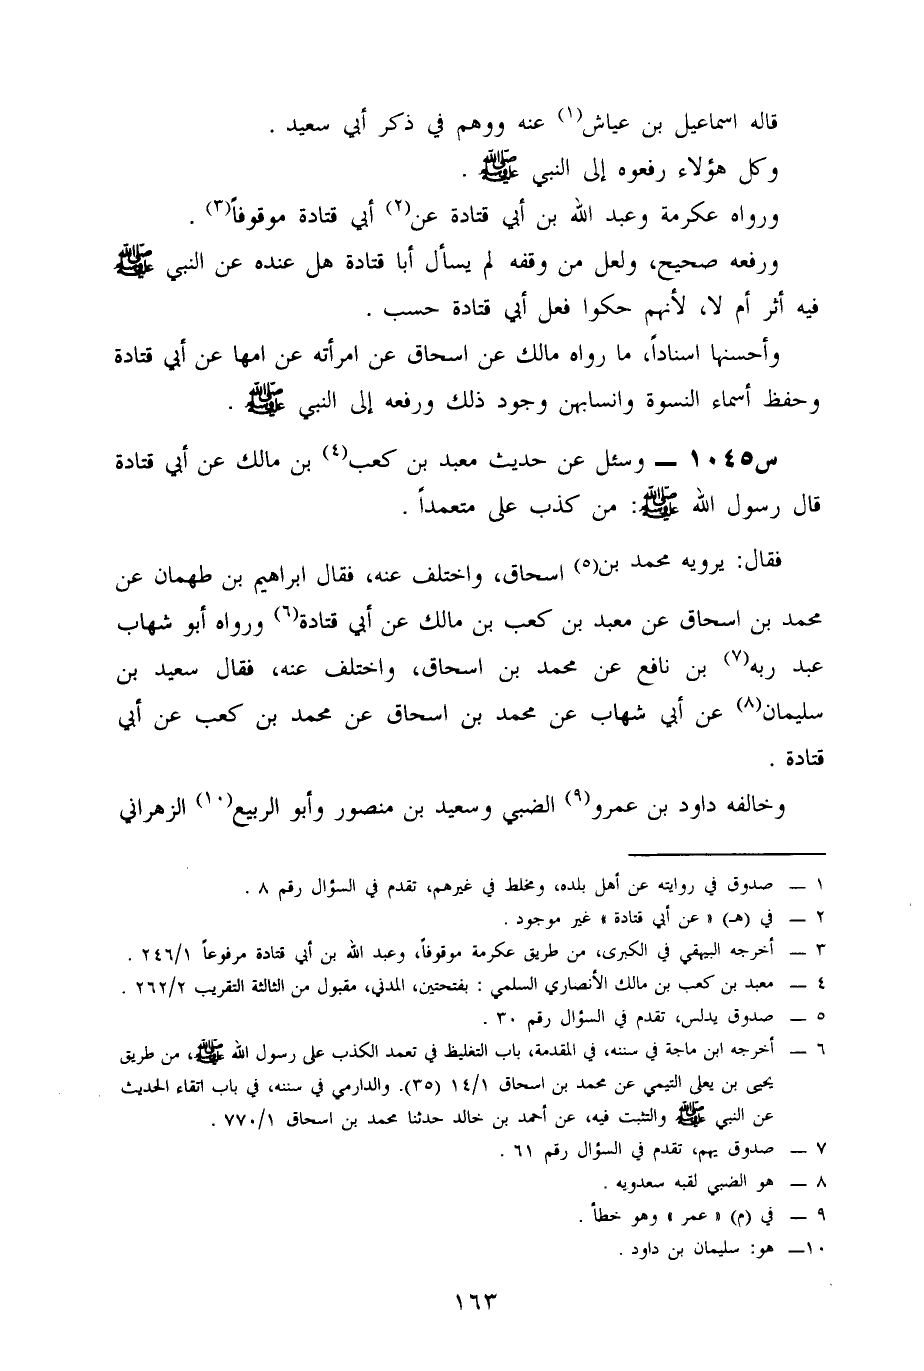 قاله اسماعيل بن عياش(١) عنه ووهم في ذكر أبي سعيد .
وكل هؤلاء رفعوه إلى النبي ﷺ .
ورواه عكرمة وعبد الله بن أبي قتادة عن(٢) أبي قتادة موقوفاً(٣) .
ورفعه صحيح، ولعل من وقفه لم يسأل أبا قتادة هل عنده عن النبي ﷺ
فيه أثر أم لا، لأنهم حكوا فعل أبي قتادة حسب .
وأحسنها اسناداً، ما رواه مالك عن اسحاق عن امرأته عن امها عن أبي قتادة
وحفظ أسماء النسوة وانسابهن وجود ذلك ورفعه إلى النبي ﷺ .
س١٠٤٥ ــ وسئل عن حديث معبد بن كعب(٤) بن مالك عن أبي قتادة
قال رسول الله ﷺ: من كذب على متعمداً .
فقال: يرويه محمد بن(٥) اسحاق، واختلف عنه، فقال ابراهيم بن طهمان عن
محمد بن اسحاق عن معبد بن كعب بن مالك عن أبي قتادة(٦) ورواه أبو شهاب
عبد ربه(٧) بن نافع عن محمد بن اسحاق، واختلف عنه، فقال سعيد بن
سليمان(٨) عن أبي شهاب عن محمد بن اسحاق عن محمد بن كعب عن أبي
قتادة .
وخالفه داود بن عمرو(٩) الضبي وسعيد بن منصور وأبو الربيع(١٠) الزهراني
١ ــ صدوق في روايته عن أهل بلده، ومخلط في غيرهم، تقدم في السؤال رقم ٨ .
٢ ــ في (هـ) « عن أبي قتادة » غير موجود .
٣ ــ أخرجه البيهقي في الكبرى، من طريق عكرمة موقوفاً، وعبد الله بن أبي قتادة مرفوعاً ٢٤٦/١ .
٤ ــ معبد بن كعب بن مالك الأنصاري السلمي : بفتحتين، المدني، مقبول من الثالثة التقريب ٢٦٢/٢ .
٥ ــ صدوق يدلس، تقدم في السؤال رقم ٣٠ .
٦ ــ أخرجه ابن ماجة في سننه، في المقدمة، باب التغليظ في تعمد الكذب على رسول الله ﷺ، من طريق
يحيى بن يعلى التيمي عن محمد بن اسحاق ١٤/١ (٣٥). والدارمي في سننه، في باب اتقاء الحديث
عن النبي ﷺ والتثبت فيه، عن أحمد بن خالد حدثنا محمد بن اسحاق ٧٧٠/١ .
٧ ــ صدوق يهم، تقدم في السؤال رقم ٦١ .
٨ ــ هو الضبي لقبه سعدويه .
٩ ــ في (م) « عمر » وهو خطأ .
١٠ــ هو: سليمان بن داود .
١٦٣